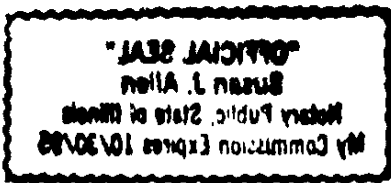 "OFFICIAL SEAL"
Susan J. Allen
Notary Public, State of Illinois
My Commission Expires 10/30/95